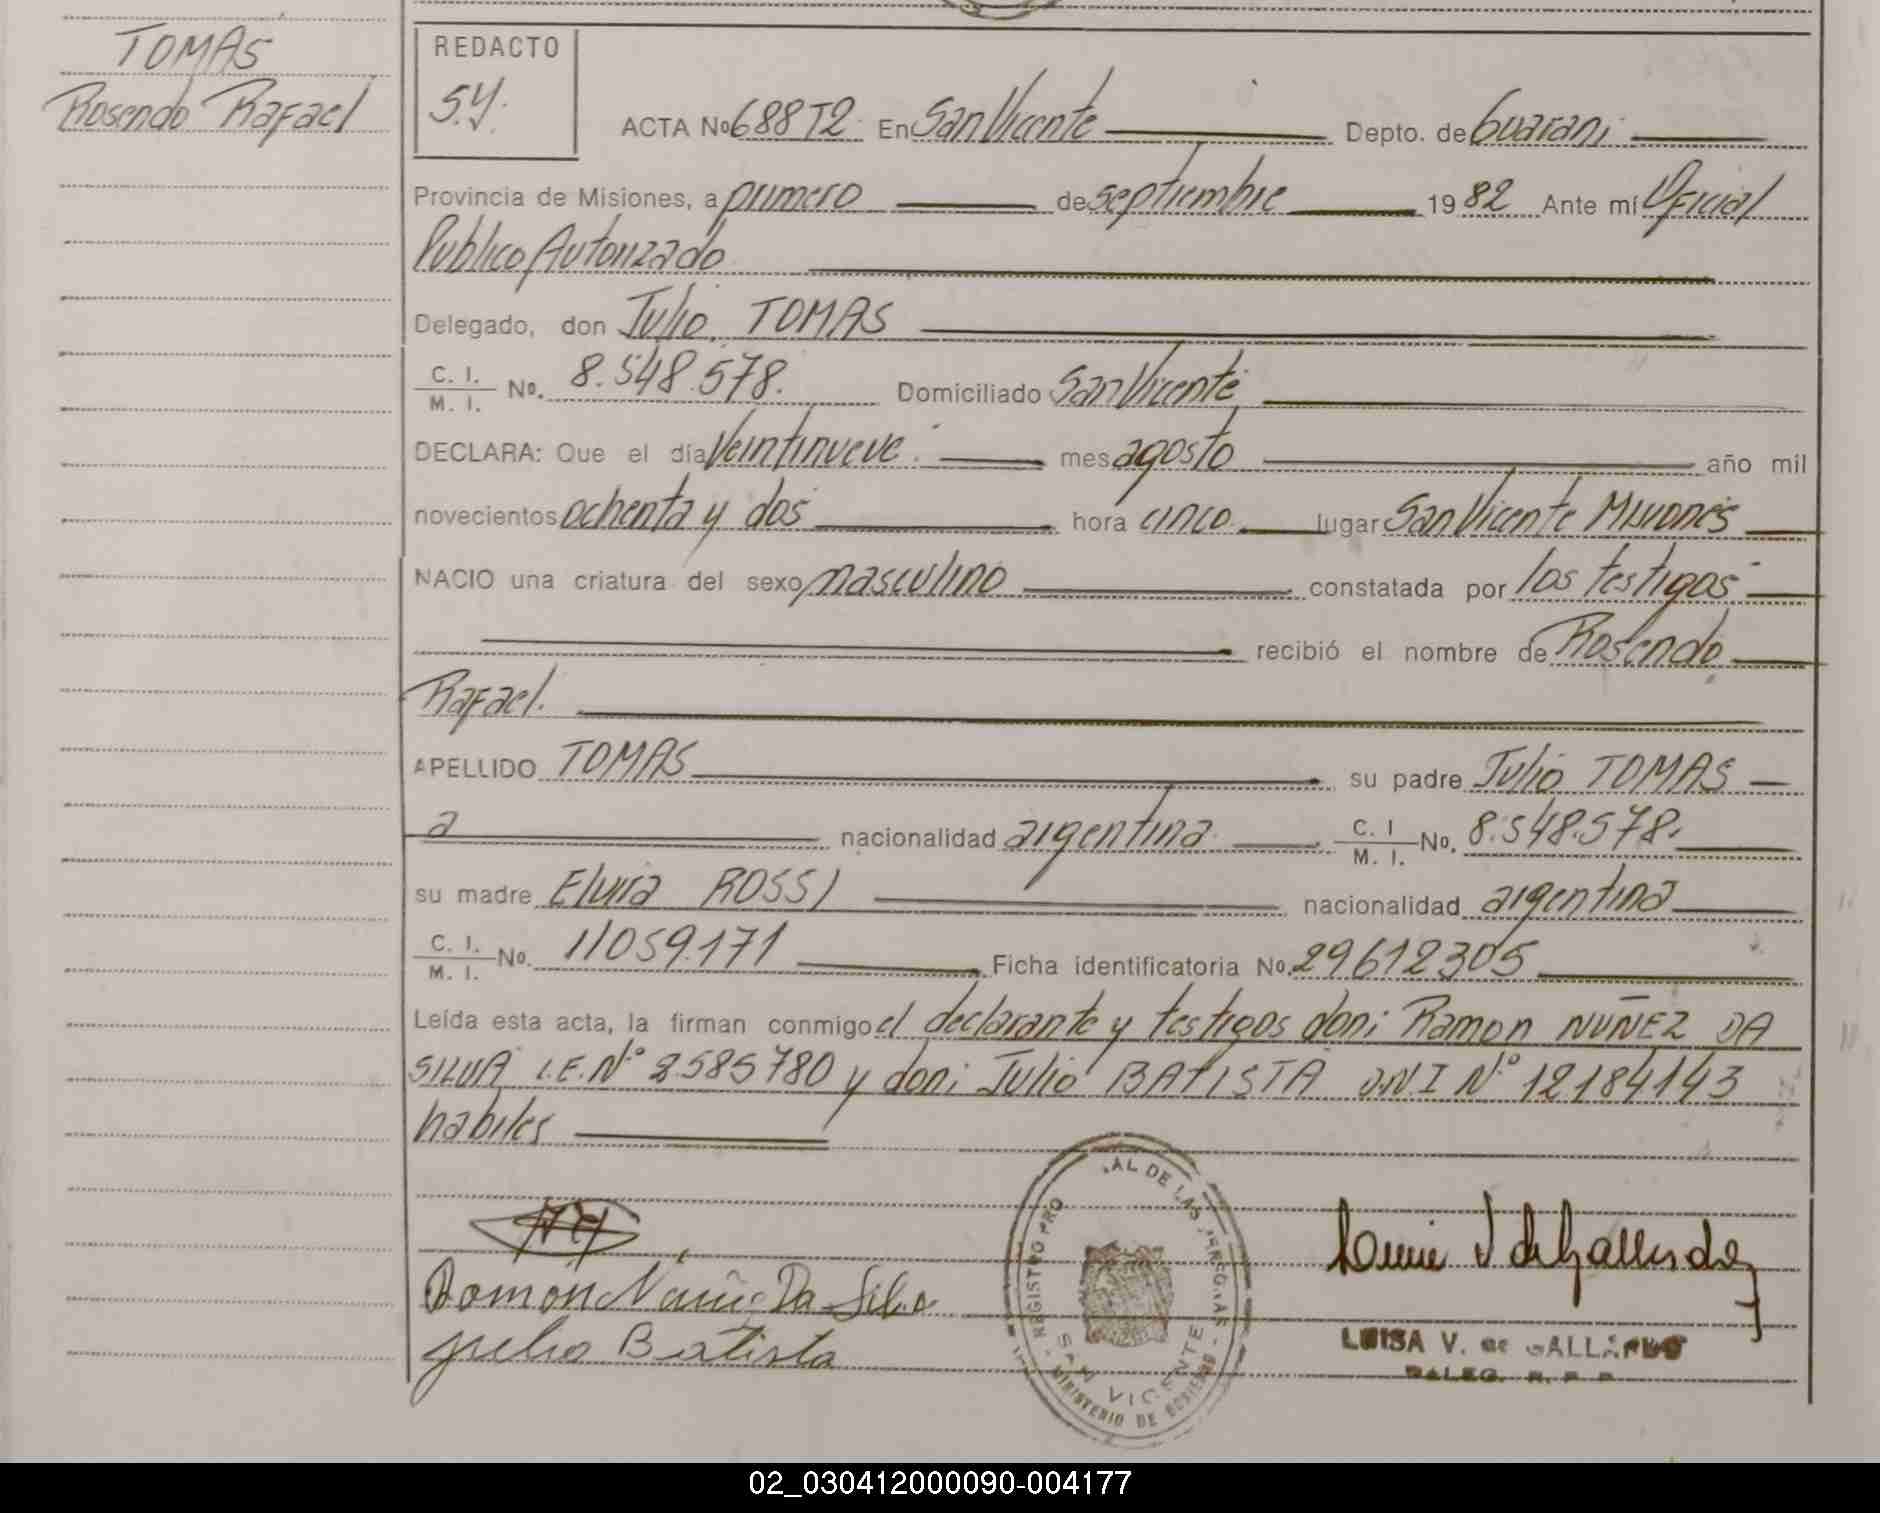 TOMAS
Rosendo Rafael
REDACTO
S.Y.
ACTA No 688 T2 En San Vicente Depto. de Guarani
Provincia de Misiones, a primero de septiembre 1982 Ante mí Oficial
Publico Autorizado
Delegado, don Julio TOMAS
C. I. / M. I. No. 8.548.578. Domiciliado San Vicente
DECLARA: Que el día Veintinueve mes agosto año mil
novecientos ochenta y dos hora cinco lugar San Vicente Misiones
NACIO una criatura del sexo masculino constatada por los testigos
recibió el nombre de Rosendo
Rafael.
APELLIDO TOMAS su padre Julio TOMAS
a nacionalidad argentina C. I / M. I. No. 8.548.578.
su madre Elvira ROSSI nacionalidad argentina
C. I. / M. I. No. 11059.171 Ficha identificatoria No. 29612305
Leída esta acta, la firman conmigo el declarante y testigos don: Ramon NUÑEZ DA
SILVA L.E.N° 8585780 y don: Julio BATISTA D.N.I N° 12184143
habiles
Ramon Da Silva
Julio Batista
REGISTRO PRO AL DE LAS PERSONAS
SAN VICENTE
MINISTERIO DE GOBIERNO
LUISA V. de GALLARDO
DELEG. R. P. P.
02_030412000090-004177